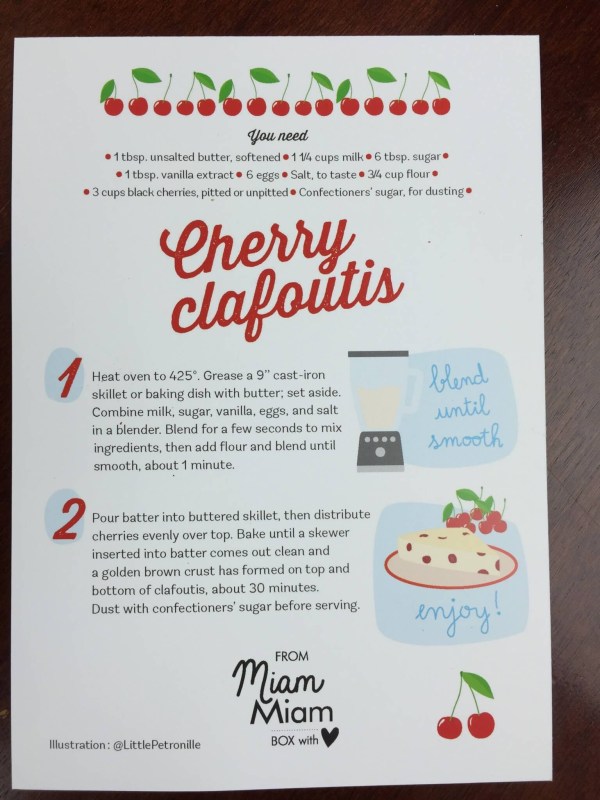 You need
• 1 tbsp. unsalted butter, softened • 1 1/4 cups milk • 6 tbsp. sugar •
• 1 tbsp. vanilla extract • 6 eggs • Salt, to taste • 3/4 cup flour •
• 3 cups black cherries, pitted or unpitted • Confectioners' sugar, for dusting •
Cherry
clafoutis
1
Heat oven to 425°. Grease a 9" cast-iron
skillet or baking dish with butter; set aside.
Combine milk, sugar, vanilla, eggs, and salt
in a blender. Blend for a few seconds to mix
ingredients, then add flour and blend until
smooth, about 1 minute.
blend
until
smooth
2
Pour batter into buttered skillet, then distribute
cherries evenly over top. Bake until a skewer
inserted into batter comes out clean and
a golden brown crust has formed on top and
bottom of clafoutis, about 30 minutes.
Dust with confectioners' sugar before serving.
enjoy!
FROM
Miam
Miam
BOX with
Illustration: @LittlePetronille